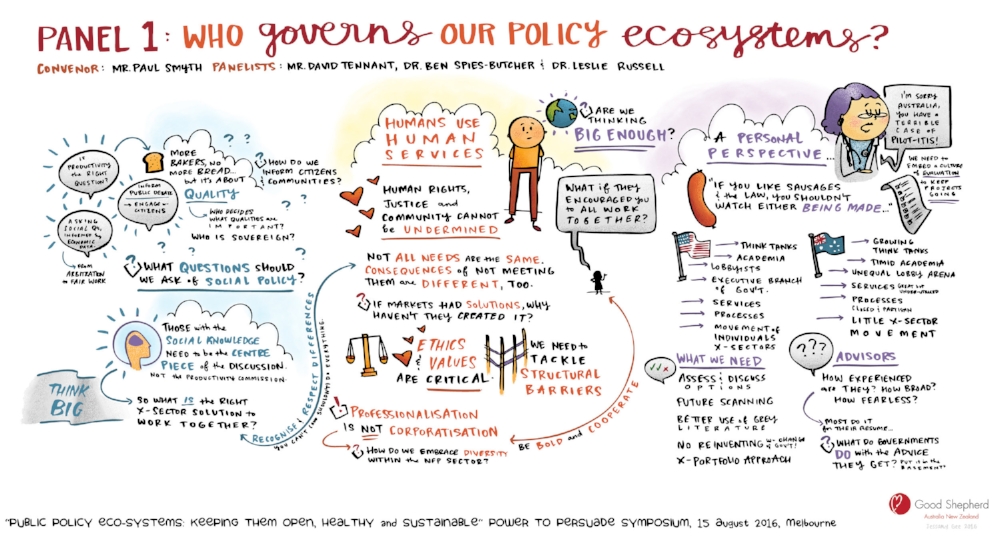 PANEL 1: WHO governs OUR POLICY ecosystems?
CONVENOR: MR. PAUL SMYTH PANELISTS: MR. DAVID TENNANT, DR. BEN SPIES-BUTCHER & DR. LESLIE RUSSELL
IS
PRODUCTIVITY
the RIGHT
QUESTION?
MORE
BAKERS, NO
MORE BREAD...
but IT'S ABOUT
QUALITY
INFORM
PUBLIC DEBATE
→ ENGAGE
CITIZENS
HOW DO WE
INFORM CITIZENS
& COMMUNITIES?
WHO DECIDES
WHAT QUALITIES ARE
IMPORTANT?
WHO IS SOVEREIGN?
ASKING
SOCIAL QS,
INFORMED by
ECONOMIC
DATA
→ FROM
ARBITRATION
to FAIR WORK
? WHAT QUESTIONS SHOULD
WE ASK of SOCIAL POLICY?
THOSE with the
SOCIAL KNOWLEDGE
NEED to be the CENTRE
PIECE of the DISCUSSION.
NOT the PRODUCTIVITY COMMISSION.
THINK
BIG
SO WHAT IS the RIGHT
X-SECTOR SOLUTION to
WORK TOGETHER?
RECOGNISE & RESPECT DIFFERENCES
YOU CAN'T COMMUNITY EVERYTHING.
HUMANS USE
HUMAN
SERVICES
HUMAN RIGHTS,
JUSTICE and
COMMUNITY CANNOT
be UNDERMINED
NOT ALL NEEDS are the SAME.
CONSEQUENCES of NOT MEETING
THEM are DIFFERENT, TOO.
? IF MARKETS HAD SOLUTIONS, WHY
HAVEN'T THEY CREATED IT?
ETHICS
& VALUES
ARE CRITICAL.
WE NEED to
TACKLE
STRUCTURAL
BARRIERS
! PROFESSIONALISATION
IS NOT CORPORATISATION
? HOW DO WE EMBRACE DIVERSITY
WITHIN the NFP SECTOR?
BE BOLD and COOPERATE
? ARE WE
THINKING
BIG ENOUGH?
WHAT if THEY
ENCOURAGED YOU
to ALL WORK
TOGETHER?
A PERSONAL
PERSPECTIVE...
I'M SORRY
AUSTRALIA,
YOU HAVE A
TERRIBLE
CASE OF
PILOT-ITIS!
WE NEED to
EMBED a CULTURE
of EVALUATION
to KEEP
PROJECTS
GOING
"IF YOU LIKE SAUSAGES
& the LAW, YOU SHOULDN'T
WATCH EITHER BEING MADE..."
→ THINK TANKS
→ ACADEMIA
LOBBYISTS
→ EXECUTIVE BRANCH
of GOV'T.
→ SERVICES
→ PROCESSES
→ MOVEMENT of
INDIVIDUALS
X-SECTORS
→ GROWING
THINK TANKS
→ TIMID ACADEMIA
→ UNEQUAL LOBBY ARENA
→ SERVICES
→ PROCESSES
CLOSED & PARTISAN
→ LITTLE X-SECTOR
MOVEMENT
WHAT WE NEED
ASSESS & DISCUSS
OPTIONS
FUTURE SCANNING
BETTER USE of GREY
LITERATURE
NO REINVENTING w- CHANGE
of GOV'T!
X-PORTFOLIO APPROACH
???
ADVISORS
HOW EXPERIENCED
are THEY? HOW BROAD?
HOW FEARLESS?
→ MOST DO IT
for THEIR RESUME...
? WHAT DO GOVERNMENTS
DO with the ADVICE
THEY GET? PUT it in the
BASEMENT?
Good Shepherd
Australia New Zealand
"PUBLIC POLICY ECO-SYSTEMS: KEEPING THEM OPEN, HEALTHY and SUSTAINABLE" POWER TO PERSUADE SYMPOSIUM, 15 August 2016, Melbourne